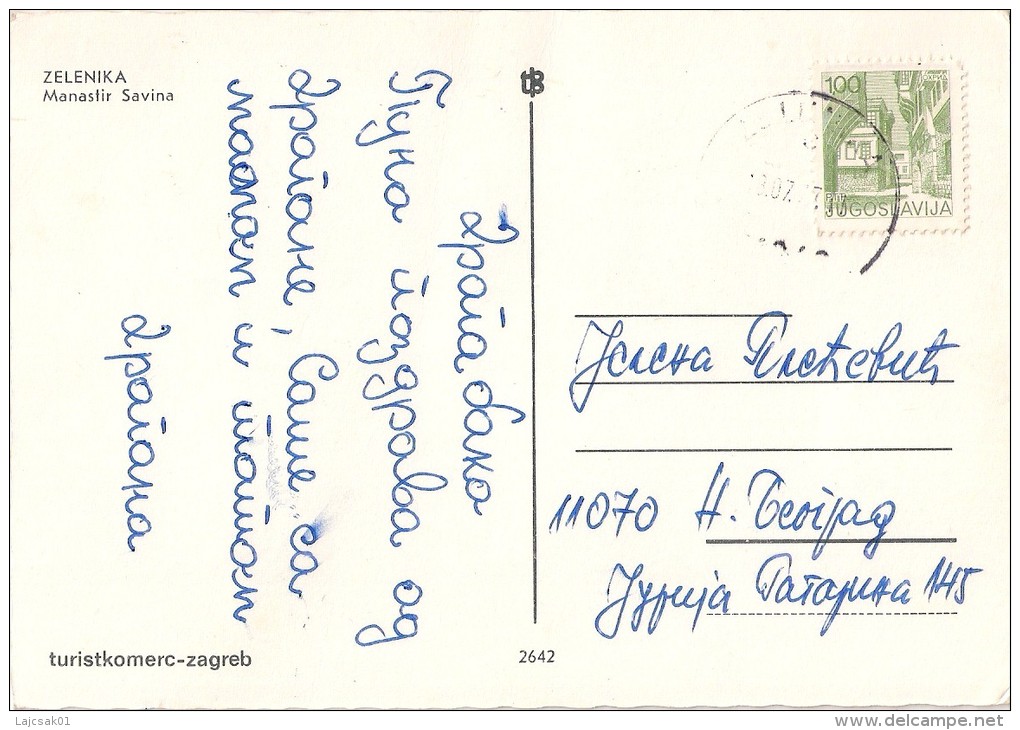 ZELENIKA
Manastir Savina
Драга бако
Пуна поздрава од
Драгане, Саше са
мамом и татом
Драгана
100
ОХРИД
JUGOSLAVIJA
Јелена
11070 Н. Београд
Јурија Гагарина 145
turistkomerc-zagreb
2642
Lajcsak01
www.delcampe.net